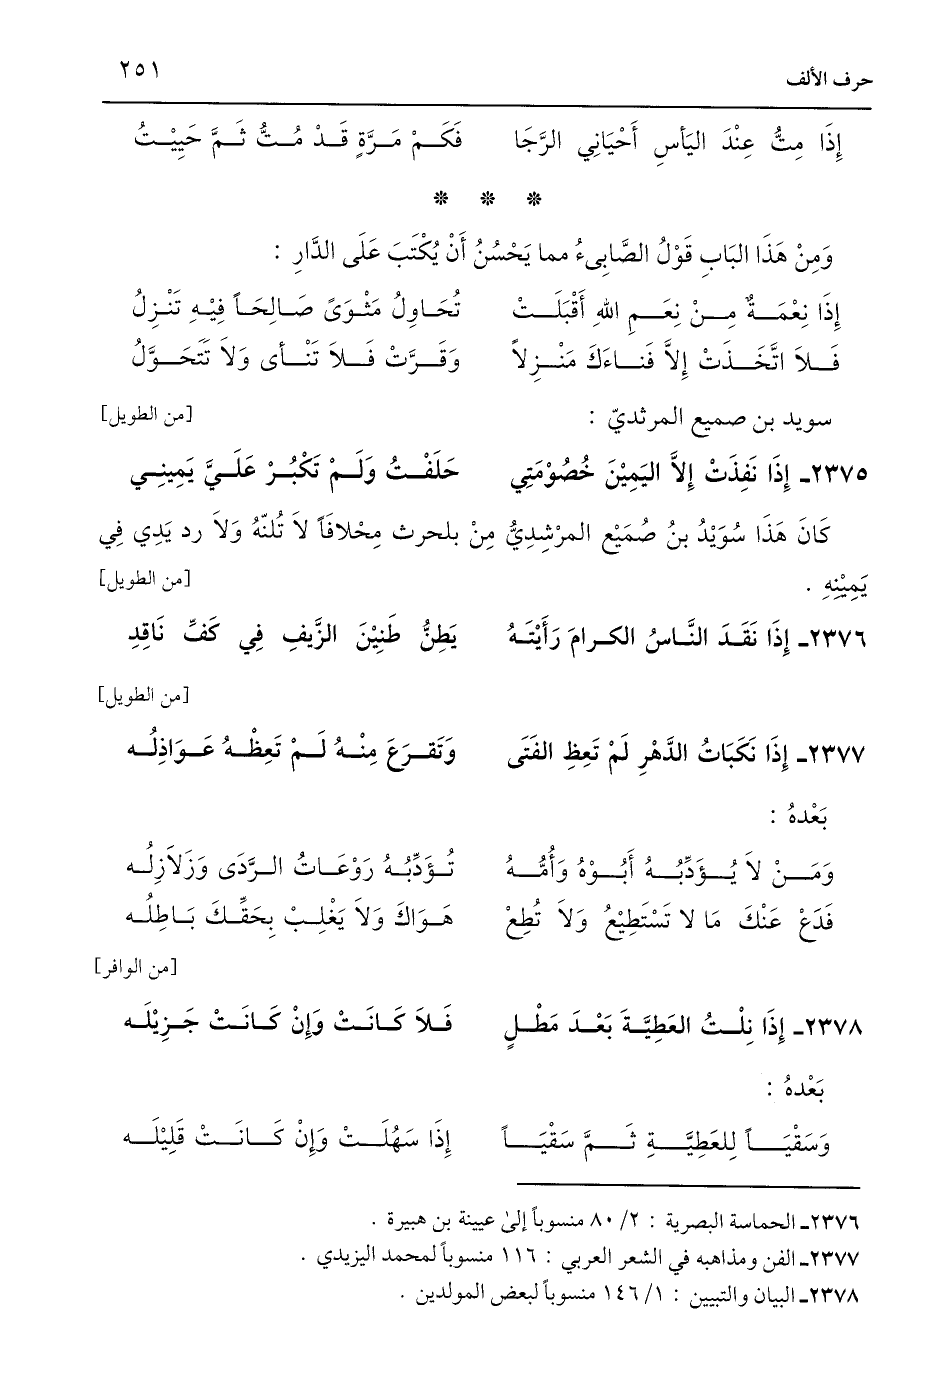 حرف الألف ٢٥١
إِذَا مِتُّ عِنْدَ اليَأسِ أَحْيَانِي الرَّجَا فَكَمْ مَرَّةٍ قَدْ مُتُّ ثَمَّ حَيِيْتُ
* * *
وَمِنْ هَذَا البَابِ قَوْلُ الصَّابِىءُ مما يَحْسُنُ أَنْ يُكْتَبَ عَلَى الدَّارِ :
إِذَا نِعْمَةٌ مِنْ نِعَمِ اللهِ أَقْبَلَتْ تُحَاوِلُ مَثْوَىً صَالِحَاً فِيْهِ تَنْزِلُ
فَلاَ اتَّخَذَتْ إِلاَّ فَنَاءَكَ مَنْزِلاً وَقَرَّتْ فَلاَ تَنْأَى وَلاَ تَتَحَوَّلُ
سويد بن صميع المرثديّ : [من الطويل]
٢٣٧٥ـ إِذَا نَفِذَتْ إِلاَّ اليَمِيْنَ خُصُوْمَتِي حَلَفْتُ وَلَمْ تَكْبُرْ عَلَيَّ يَمِينِي
كَانَ هَذَا سُوَيْدُ بنُ صُمَيْعِ المرْشِدِيُّ مِنْ بلحرث مِخْلافَاً لاَ تُلنّهُ وَلاَ رد يَدِي فِي
يَمِيْنِهِ . [من الطويل]
٢٣٧٦ـ إِذَا نَقَدَ النَّاسُ الكرامَ رَأَيْتَهُ يَطِنُّ طَنِيْنَ الزَّيفِ فِي كَفِّ نَاقِدِ
[من الطويل]
٢٣٧٧ـ إِذَا نَكَبَاتُ الدَّهْرِ لَمْ تَعِظِ الفَتَى وَتَقرَعَ مِنْهُ لَمْ تَعِظْهُ عَوَاذِلُه
بَعْدهُ :
وَمَنْ لاَ يُؤَدِّبُهُ أَبُوْهُ وَأُمُّهُ تُؤَدِّبُهُ رَوْعَاتُ الرَّدَى وَزَلاَزِلُه
فَدَعْ عَنْكَ مَا لا تَسْتَطِيْعُ وَلاَ تُطِعْ هَوَاكَ وَلاَ يَغْلِبْ بِحَقِّكَ بَاطِلُه
[من الوافر]
٢٣٧٨ـ إِذَا نِلْتُ العَطِيَّةَ بَعْدَ مَطْلٍ فَلاَ كَانَتْ وَإِنْ كَانَتْ جَزِيْلَه
بَعْدهُ :
وَسَقْيَاً لِلعَطِيَّةِ ثَمَّ سَقْيَاً إِذَا سَهُلَتْ وَإِنْ كَانَتْ قَلِيْلَه
٢٣٧٦ـ الحماسة البصرية : ٢/ ٨٠ منسوباً إلىٰ عيينة بن هبيرة .
٢٣٧٧ـ الفن ومذاهبه في الشعر العربي : ١١٦ منسوباً لمحمد اليزيدي .
٢٣٧٨ـ البيان والتبيين : ١/ ١٤٦ منسوباً لبعض المولدين .